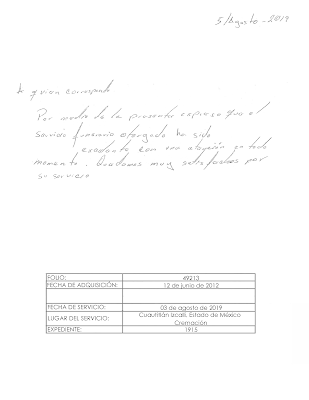 5/Agosto - 2019
A quien corresponda
Por medio de la presente expreso que el
servicio funerario otorgado ha sido
excelente con una atención en todo
momento. Quedamos muy satisfechos por
su servicio
FOLIO: 49213
FECHA DE ADQUISICIÓN: 12 de junio de 2012
FECHA DE SERVICIO: 03 de agosto de 2019
LUGAR DEL SERVICIO: Cuautitlán Izcalli, Estado de México
Cremación
EXPEDIENTE: 1915